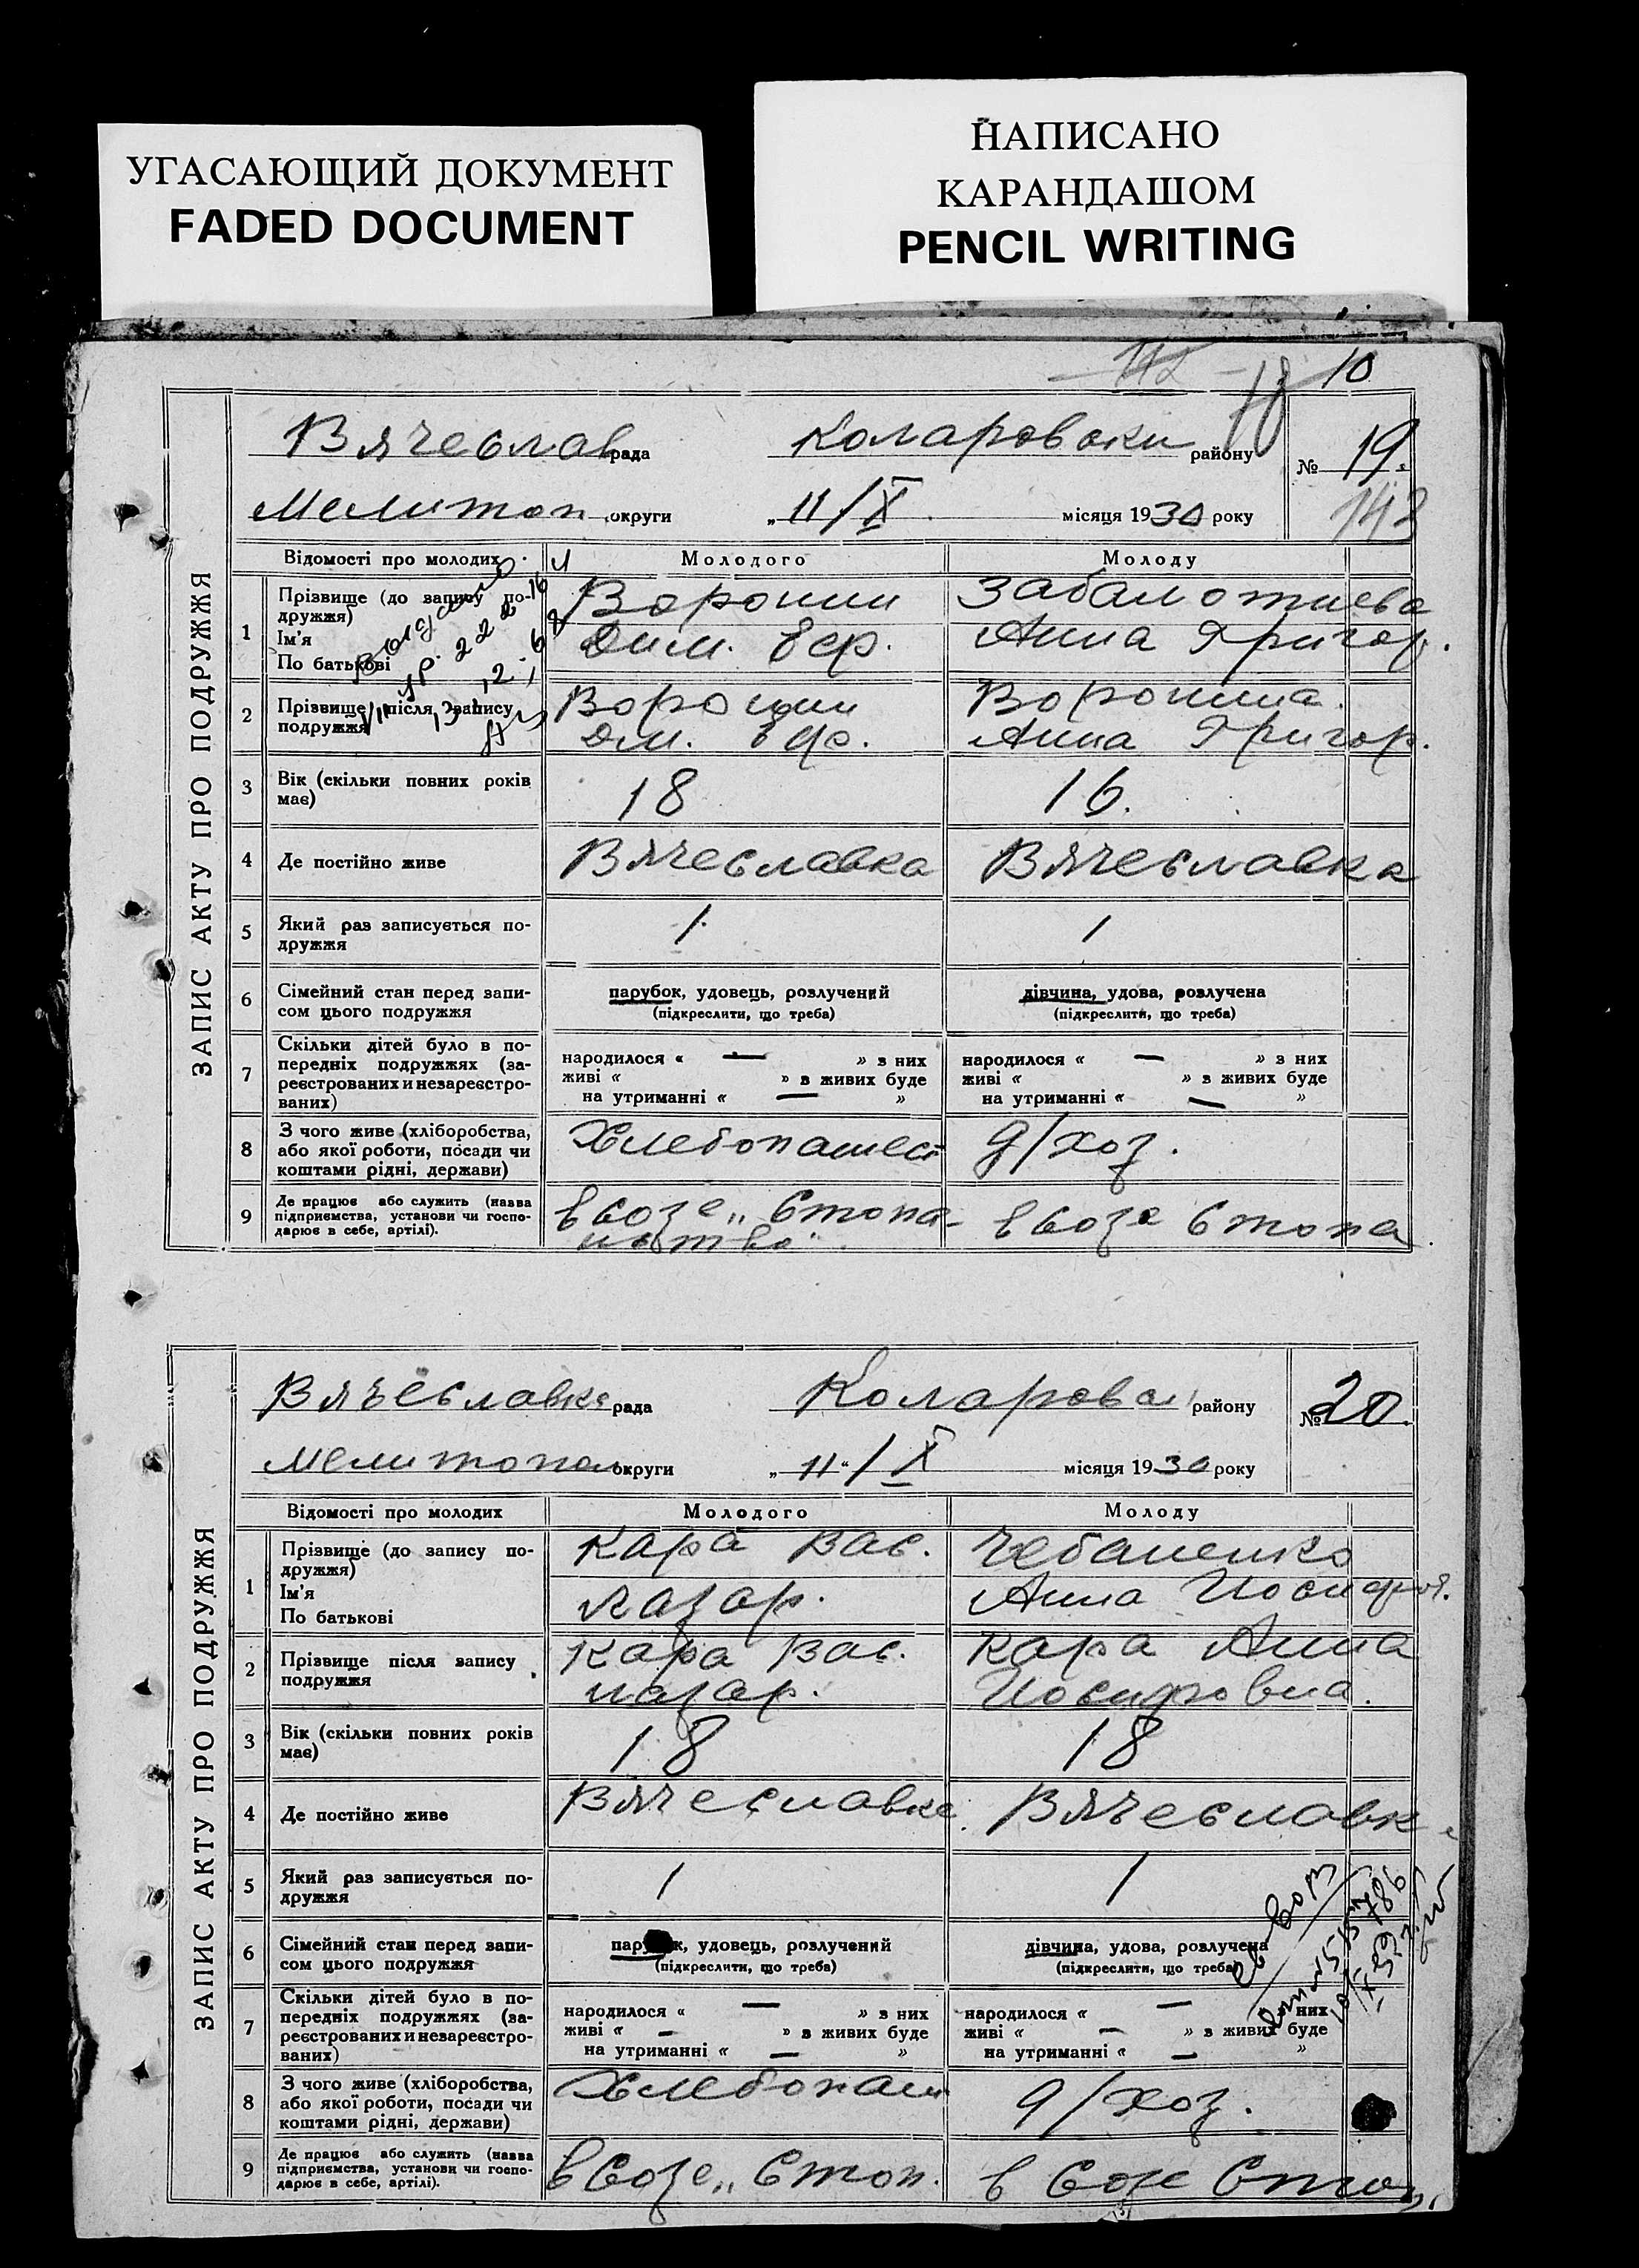 УГАСАЮЩИЙ ДОКУМЕНТ
FADED DOCUMENT
НАПИСАНО
КАРАНДАШОМ
PENCIL WRITING
10
ЗАПИС АКТУ ПРО ПОДРУЖЖЯ
Вячеслав рада Коларовски району № 19.
143
Мелитоп. округи „ 11/X. місяця 1930 року
Відомості про молодих Молодого Молоду
1 Прізвище (до запису по-
дружжя)
Ім'я
По батькові
Воронин
Дим. Еф.
Забалотнева
Анна Григор.
2 Прізвище після запису
подружжя
Воронин
Дм. Еф.
Воронина.
Анна Григор.
3 Вік (скільки повних років
має)
18 16.
4 Де постійно живе Вячеславка Вячеславка
5 Який раз записується по-
дружжя
1. 1
6 Сімейний стан перед запи-
сом цього подружжя
парубок, удовець, розлучений
(підкреслити, що треба)
дівчина, удова, розлучена
(підкреслити, що треба)
7 Скільки дітей було в по-
передніх подружжях (за-
реєстрованих и незареєстро-
ваних)
народилося « — » з них
живі « » з живих буде
на утриманні « — »
народилося « — » з них
живі « » з живих буде
на утриманні « — »
8 З чого живе (хліборобства,
або якої роботи, посади чи
коштами рідні, держави)
Хлебопашест д/хоз.
9 Де працює або служить (назва
підприємства, установи чи госпо-
дарює в себе, артілі).
в созе „Стопа-
нство".
в созе Стопа
ЗАПИС АКТУ ПРО ПОДРУЖЖЯ
Вячеславке рада Коларовск району № 20.
Мелитопол округи „ 11" / X місяця 1930 року
Відомості про молодих Молодого Молоду
1 Прізвище (до запису по-
дружжя)
Ім'я
По батькові
Кара Вас.
Лазар.
Чебаненко
Анна Иосифов.
2 Прізвище після запису
подружжя
Кара Вас.
Лазар.
Кара Анна
Иосифовна.
3 Вік (скільки повних років
має)
18 18
4 Де постійно живе Вячеславке. Вячеславк.
5 Який раз записується по-
дружжя
1 1
6 Сімейний стан перед запи-
сом цього подружжя
парубок, удовець, розлучений
(підкреслити, що треба)
дівчина, удова, розлучена
(підкреслити, що треба)
7 Скільки дітей було в по-
передніх подружжях (за-
реєстрованих и незареєстро-
ваних)
народилося « — » з них
живі « — » з живих буде
на утриманні « — »
народилося « — » з них
живі « — » з живих буде
на утриманні « — »
8 З чого живе (хліборобства,
або якої роботи, посади чи
коштами рідні, держави)
Хлебопаш д/хоз.
9 Де працює або служить (назва
підприємства, установи чи госпо-
дарює в себе, артілі).
в Созе „Стоп.
в Созе Стоп.